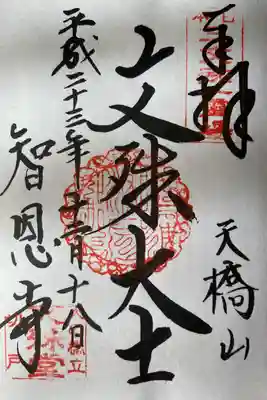 奉拝
天橋山
文殊大士
平成二十三年十二月十八日
智恩寺